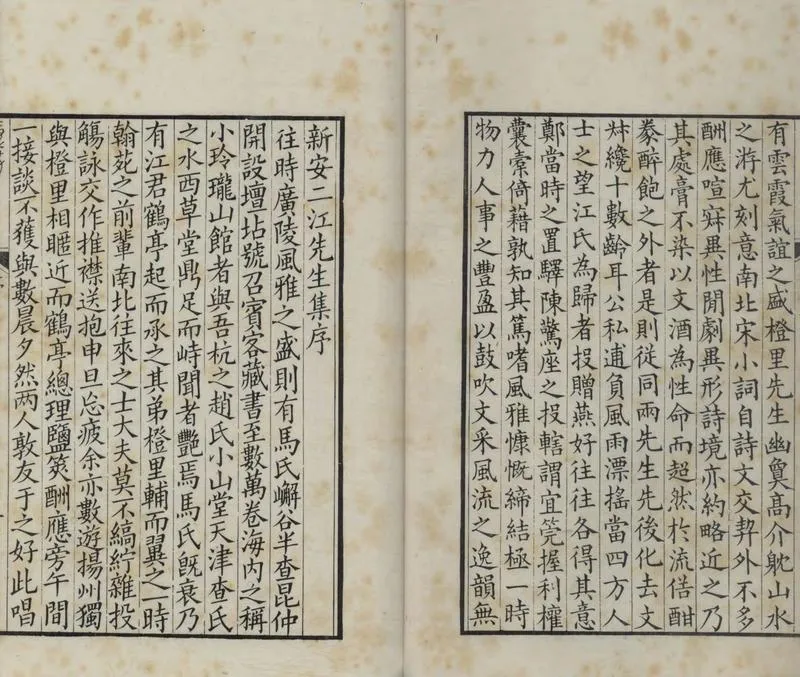 有雲霞氣誼之盛橙里先生幽敻高介躭山水
之游尤刻意南北宋小詞自詩文交契外不多
酬應喧寂異性閒劇異形詩境亦約略近之乃
其處膏不染以文酒為性命而超然於流俗酣
豢醉飽之外者是則從同兩先生先後化去文
叔纔十數齡耳公私逋負風雨漂搖當四方人
士之望江氏為歸者投贈燕好往往各得其意
鄭當時之置驛陳驚座之投轄謂宜筦握利權
囊橐倚藉孰知其篤嗜風雅慷慨締結極一時
物力人事之豐盈以鼓吹文采風流之逸韻無
新安二江先生集序
往時廣陵風雅之盛則有馬氏嶰谷半查昆仲
開設壇坫號召賓客藏書至數萬卷海內之稱
小玲瓏山館者與吾杭之趙氏小山堂天津查氏
之水西草堂鼎足而峙聞者艷焉馬氏旣衰乃
有江君鶴亭起而承之其弟橙里輔而翼之一時
翰苑之前輩南北往來之士大夫莫不縞紵雜投
觴詠交作推襟送抱申旦忘疲余亦數遊揚州獨
與橙里相暱近而鶴亭總理鹽筴酬應旁午間
一接談不獲與數晨夕然兩人敦友于之好此唱